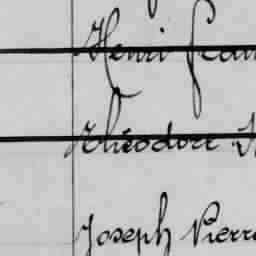 Henri
Théodore
Joseph Pierre